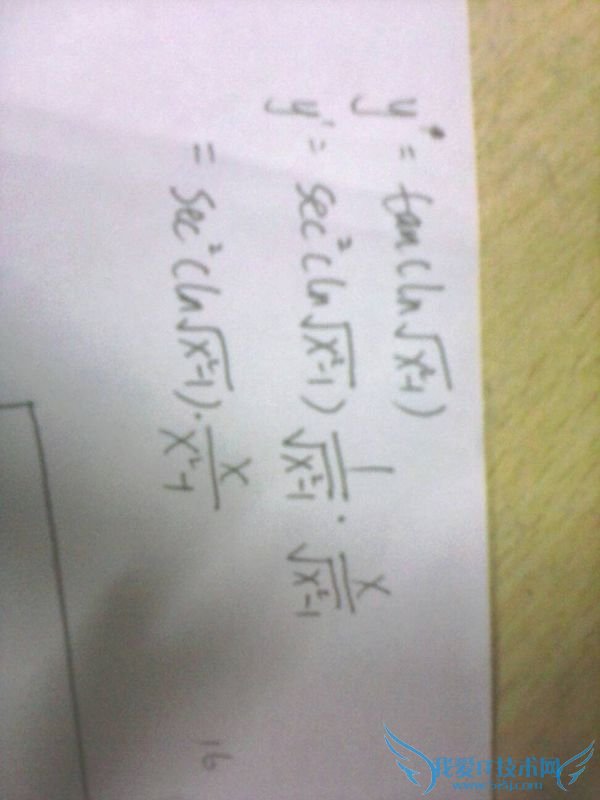 y = tan(ln√(x²-1))
y' = sec²(ln√(x²-1)) 1/√(x²-1) · x/√(x²-1)
= sec²(ln√(x²-1)) · x/(x²-1)
16
我爱IT技术网
www.52ij.com